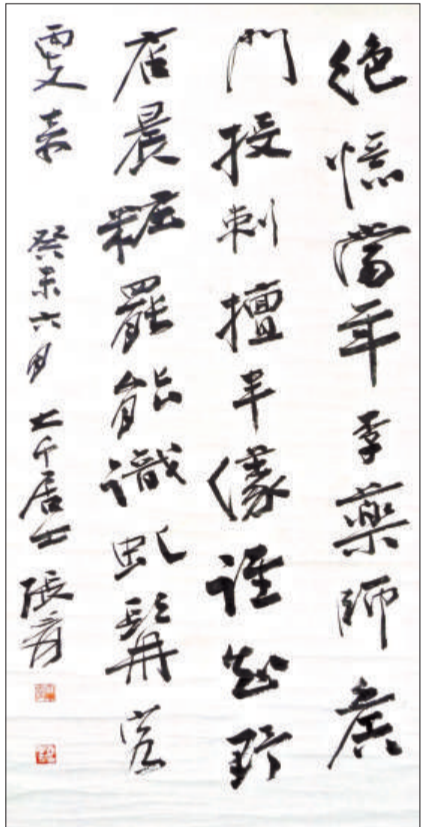 絕憶當年李藥師
門投刺擅丰儀誰知野
店晨粧罷能識虬髯客
更奇 癸未六月 大千居士張爰